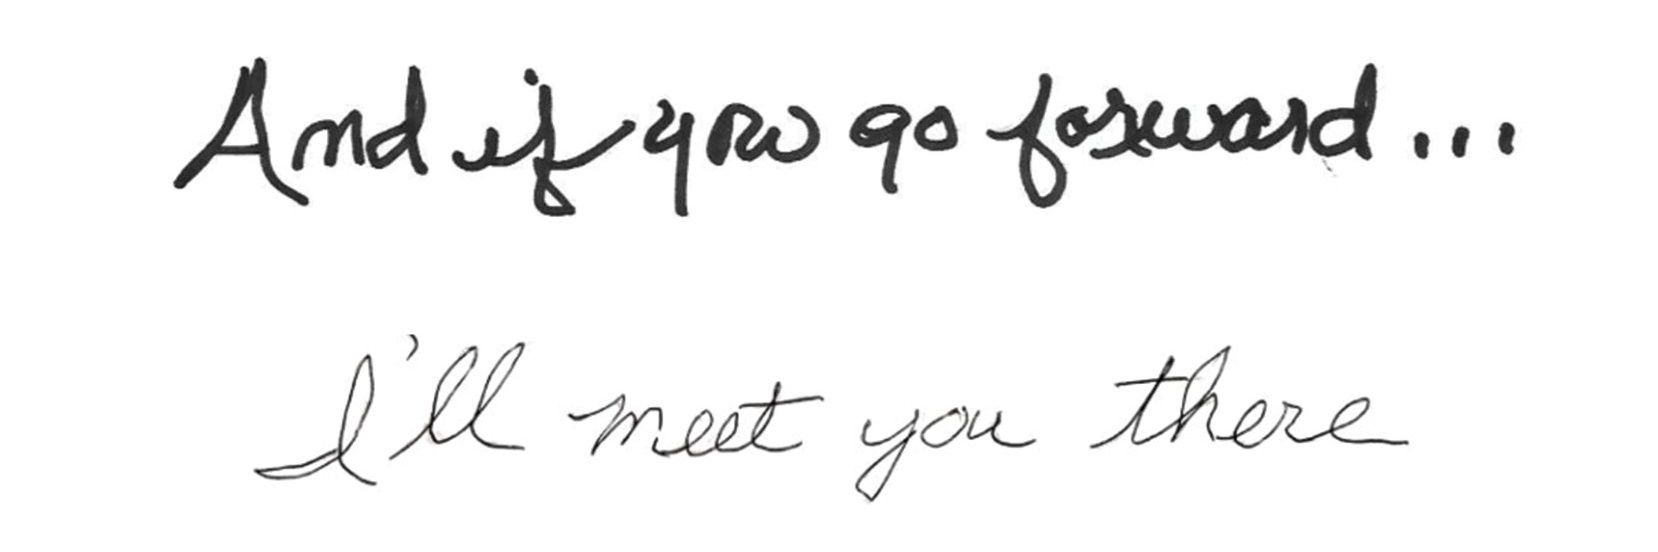 And if you go forward...
I'll meet you there